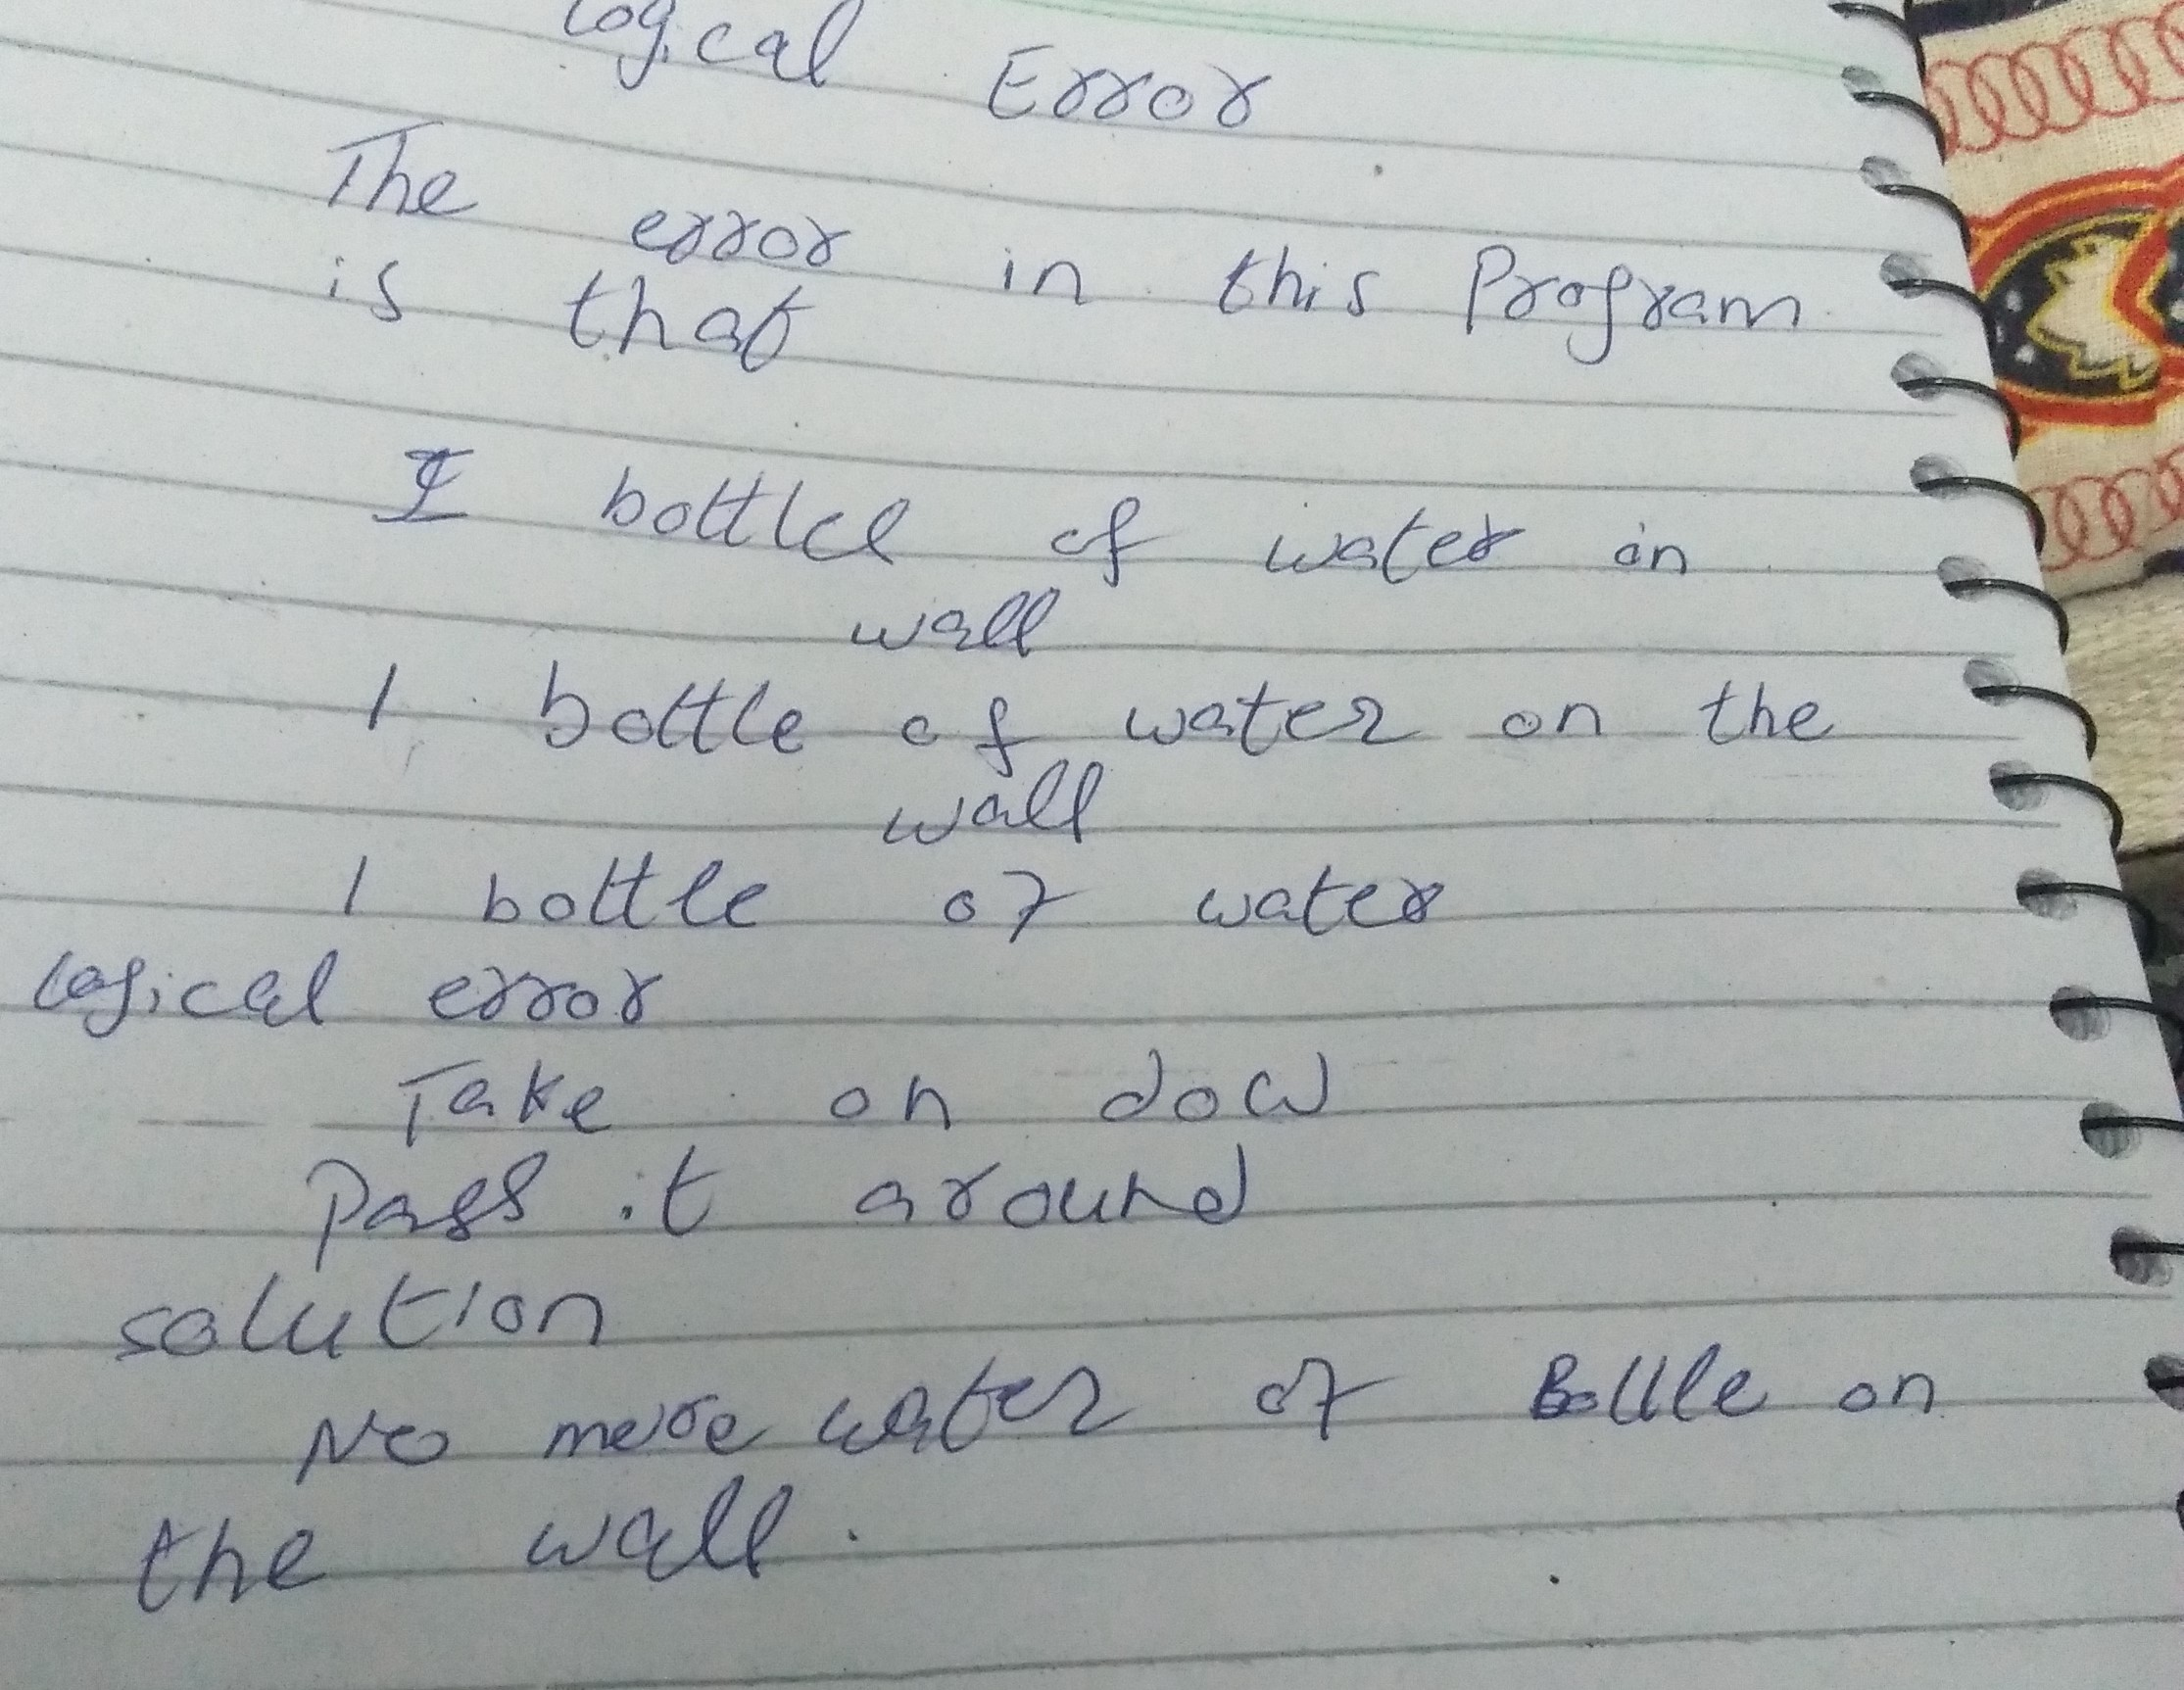 Logical Error
The error in this Program
is that
bottle of water on
wall
1 bottle of water on the
wall
1 bottle of water
logical error
Take on dow
Pass it around
solution
No more water of Bottle on
the wall.